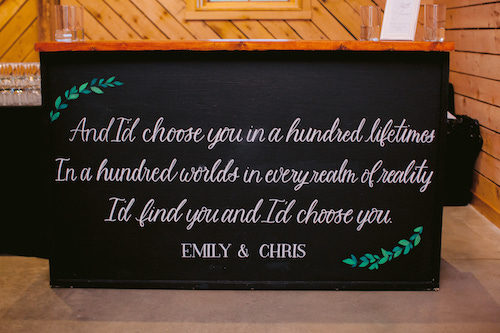 And I'd choose you in a hundred lifetimes
In a hundred worlds in every realm of reality
I'd find you and I'd choose you.
EMILY & CHRIS